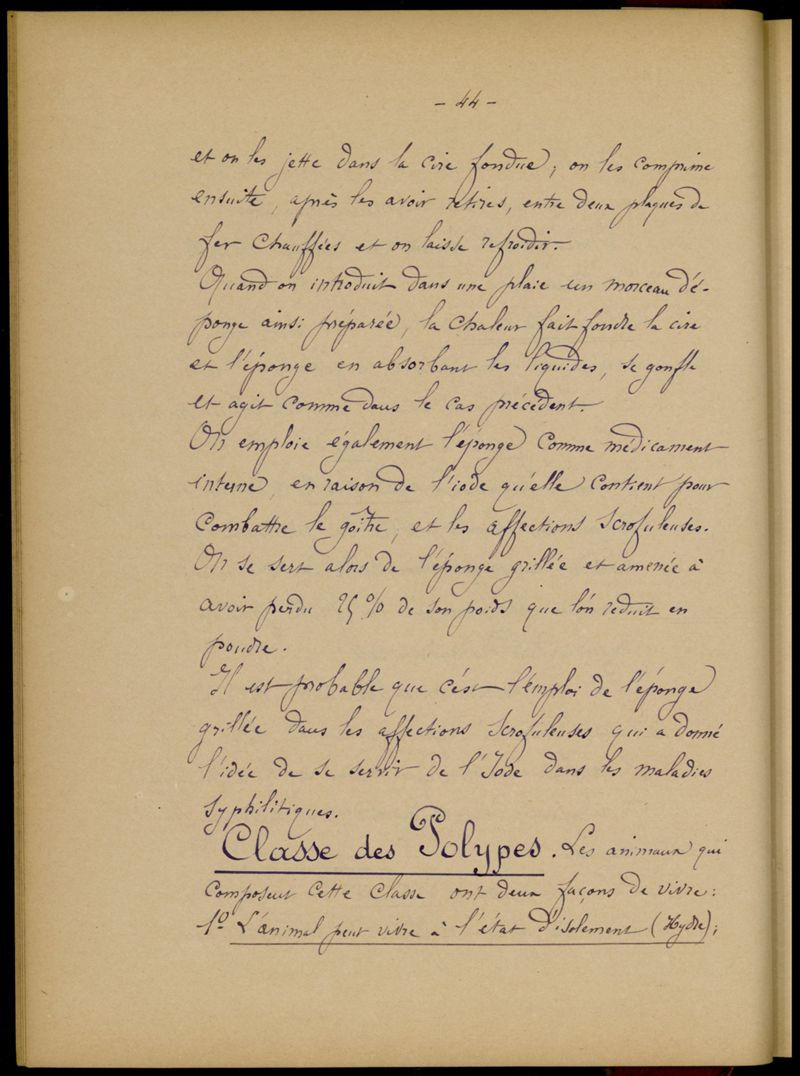 - 44 -
et on les jette dans la cire fondue, on les comprime
ensuite, après les avoir retirés, entre deux plaques de
fer chauffées et on laisse refroidir.
Quand on introduit dans une plaie un morceau d'é-
ponge ainsi préparée, la chaleur fait fondre la cire
et l'éponge en absorbant les liquides, se gonfle
et agit comme dans le cas précédent.
On emploie également l'éponge comme médicament
interne, en raison de l'iode qu'elle contient pour
combattre le goître, et les affections scrofuleuses.
On se sert alors de l'éponge grillée et amenée à
avoir perdu 25 % de son poids que l'on réduit en
poudre.
Il est probable que c'est l'emploi de l'éponge
grillée dans les affections scrofuleuses qui a donné
l'idée de se servir de l'Iode dans les maladies
syphilitiques.
Classe des Polypes. Les animaux qui
composent cette classe ont deux façons de vivre:
1º L'animal peut vivre à l'état d'isolement (Hydre);